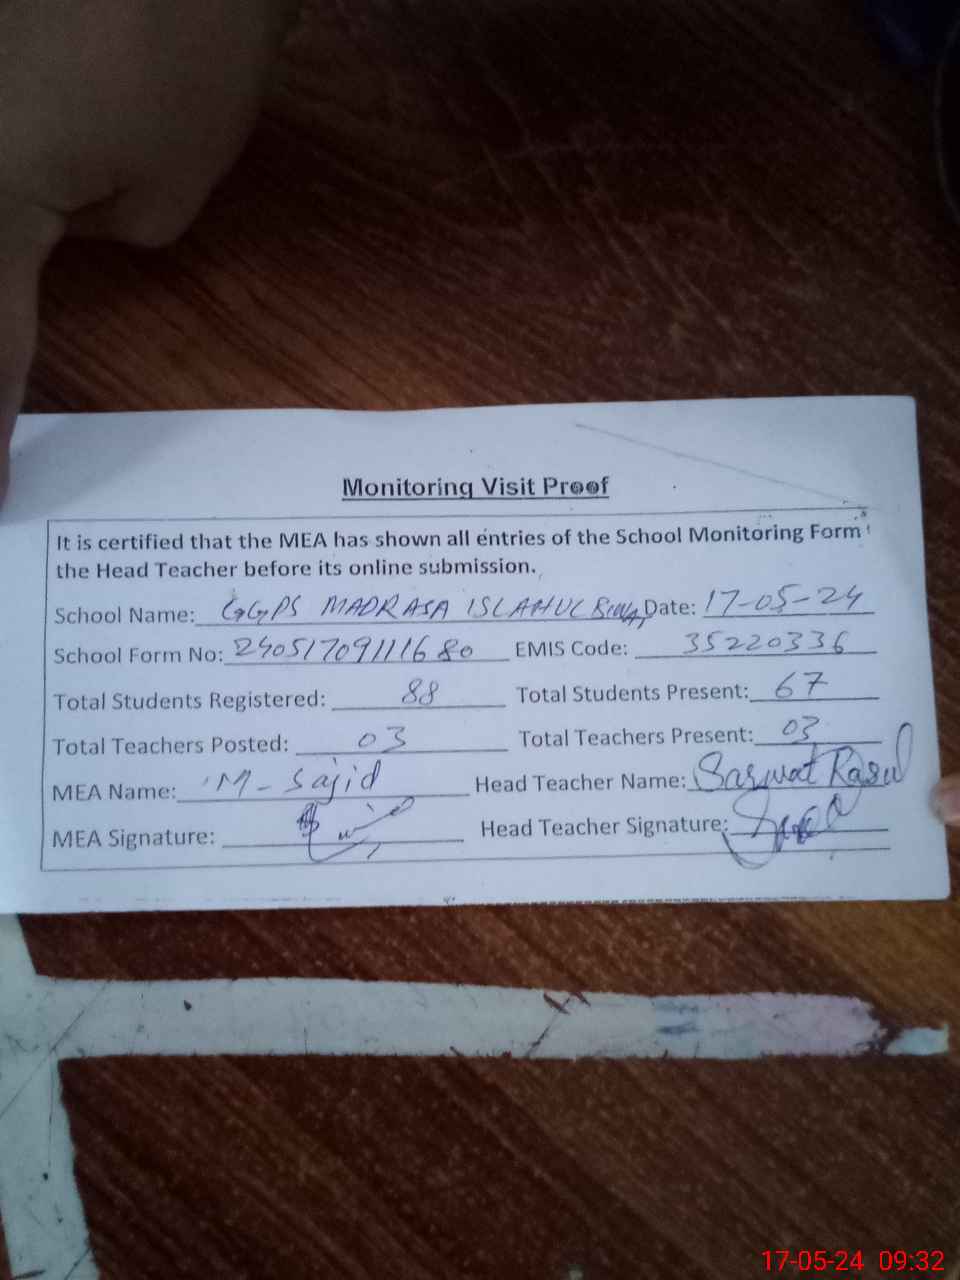 Monitoring Visit Proof
It is certified that the MEA has shown all entries of the School Monitoring Form
the Head Teacher before its online submission.
School Name: GGPS MADRASA ISLAHUL Date: 17-05-24
School Form No: 24051709111680 EMIS Code: 35220336
Total Students Registered: 88 Total Students Present: 67
Total Teachers Posted: 03 Total Teachers Present: 03
MEA Name: M- Sajid Head Teacher Name: Sarwat Rasul
MEA Signature: Head Teacher Signature:
17-05-24 09:32